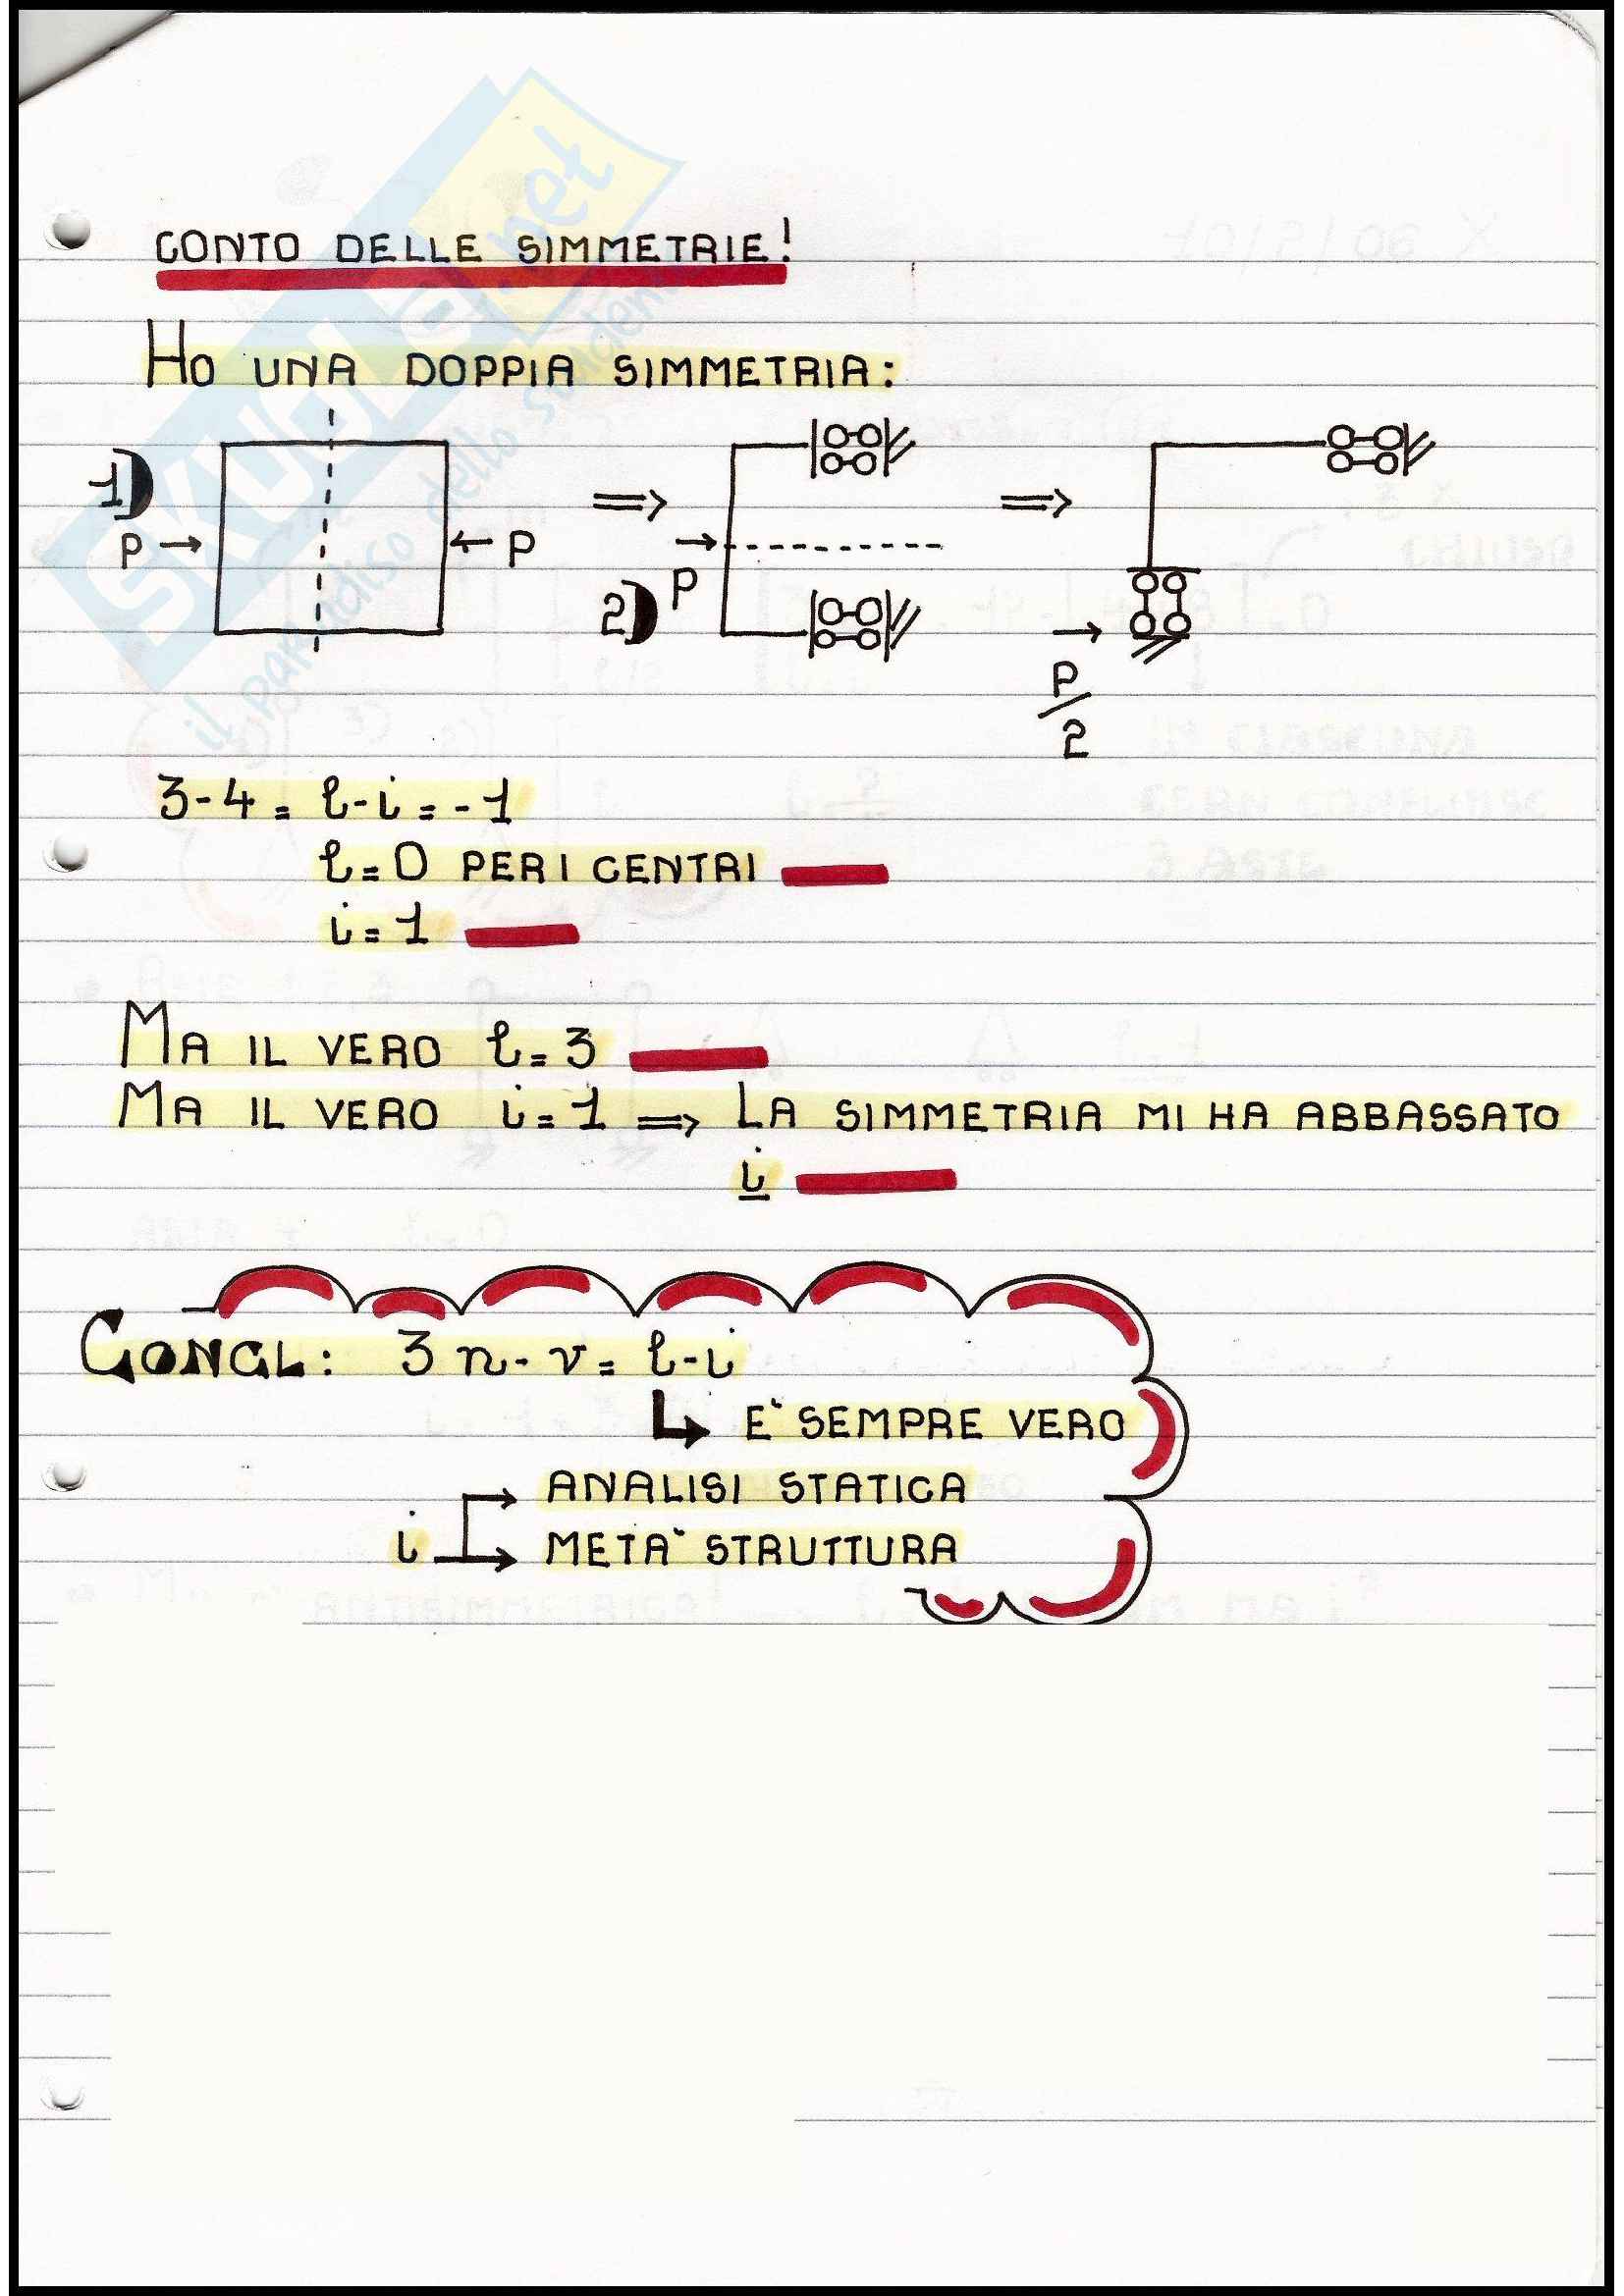 CONTO DELLE SIMMETRIE!
HO UNA DOPPIA SIMMETRIA:
1)
P → ← P
⇒
P
2)
⇒
P/2
3-4 = l-i = -1
l=0 PER I CENTRI
i=1
MA IL VERO l=3
MA IL VERO i=1 ⇒ LA SIMMETRIA MI HA ABBASSATO
i
CONCL: 3n-v = l-i
↳ E' SEMPRE VERO
ANALISI STATICA
i
META' STRUTTURA
SKUOLA.net
il paradiso dello studente